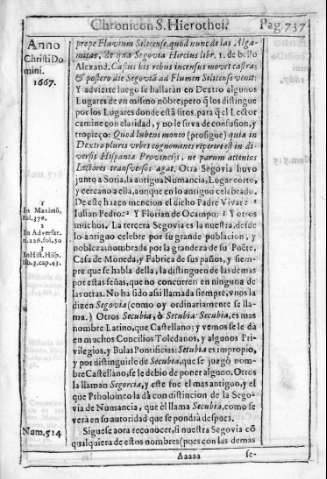 Chronicon S. Hierothei. Pag. 737
Anno
Christi Do
mini.
1667.
prope Fluvium Silicense, quod nunc de las Alga-
de qua Segovia Hircius lib. 1. de bello
Alexand. Casius his rebus incensus movet castra:
& postero die Segoviã ad Flumen Silicense venit:
Y advierte luego se hallaràn en Dextro algunos
Lugares de un mismo nõbre; pero q̃ los distingue
por los Lugares donde està sitos, para q̃ el Lector
camine con claridad, y no le sirva de confusion, y
tropieço: Quod lubens moneo (prosigue) quia in
Dextro plures urbes cognomines reperies et in di-
versis Hispania Provincijs, ne parum attentos
Lectores transversos agat. Otra Segovia huvo
junto a Soria, la antigua Numancia, Lugar corto,
y cercano a ella, aunque en lo antiguo celebrado.
De este hazen mencion el dicho Padre Vivar: 1
Iulian Pedro: 2 Y Florian de Ocampo: 3 Y otros
muchos. La tercera Segovia es la nuestra, desde
lo antiguo celebre por su grande poblacion, y
nobleza: nombrada por la grandeza de su Puẽte,
Casa de Moneda, y Fabrica de sus paños, y siem-
pre que se habla della, la distinguen de las demas
por estas señas, que no concurren en ninguna de
las otras. No ha sido assi llamada siempre, unos la
dizen Segovia (como oy ordinariamente se lla-
ma.) Otros Secubia, ò Secubia. Secubia, es mas
nombre Latino, que Castellano; y vemos se le dà
en muchos Concilios Toledanos, y algunos Pri-
vilegios, y Bulas Pontificias: Setubia es impropio,
y por distinguirle de Secubia, que se juzgò nom-
bre Castellano, se le debio de poner alguno. Otros
la llaman Segorcia, y este fue el mas antiguo, y el
que Ptholomeo la dà con distincion de la Sego-
via de Numancia, que èl llama Secubia, como se
verà en su autoridad que se pondrà despues.
Siguese aora reconocer, si nuestra Segovia cõ
qualquiera de estos nombres (pues con las demas
1
In Maximũ,
fol. 370.
2
In Adversar.
3
In Hist. Hisp.
Num. 514
Aaaaa se-